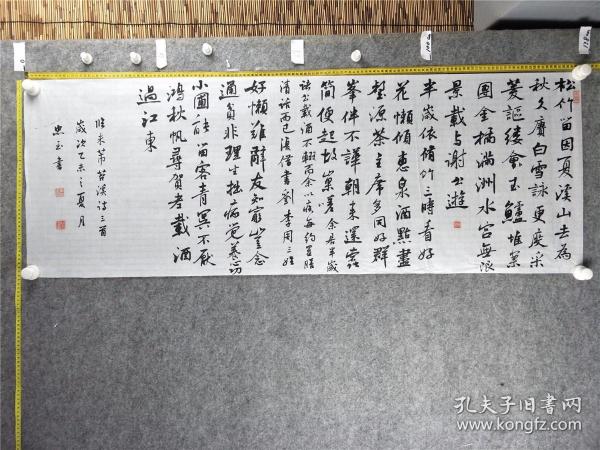 松竹留因夏溪山去為
秋久賡白雪詠更度采
菱謳縷會玉鱸堆案
團金橘滿洲水宮無限
景載与謝公遊
半歲依脩竹三時看好
花懶傾惠泉酒點盡
壑源茶主席多同好群
峯伴不譁朝来還蠹
簡便起故巢嗟余居半歲
諸公載酒不輟而余以疾每約置膳
清話而已復借書劉李周三姓
好懶難辭友知窮豈念
通貧非理生拙病覺養心功
小圃能留客青冥不厭
鴻秋帆尋賀老載酒
過江東
臨米芾苕溪詩三首
歲次乙未之夏月
玉書
孔夫子旧书网
www.kongfz.com